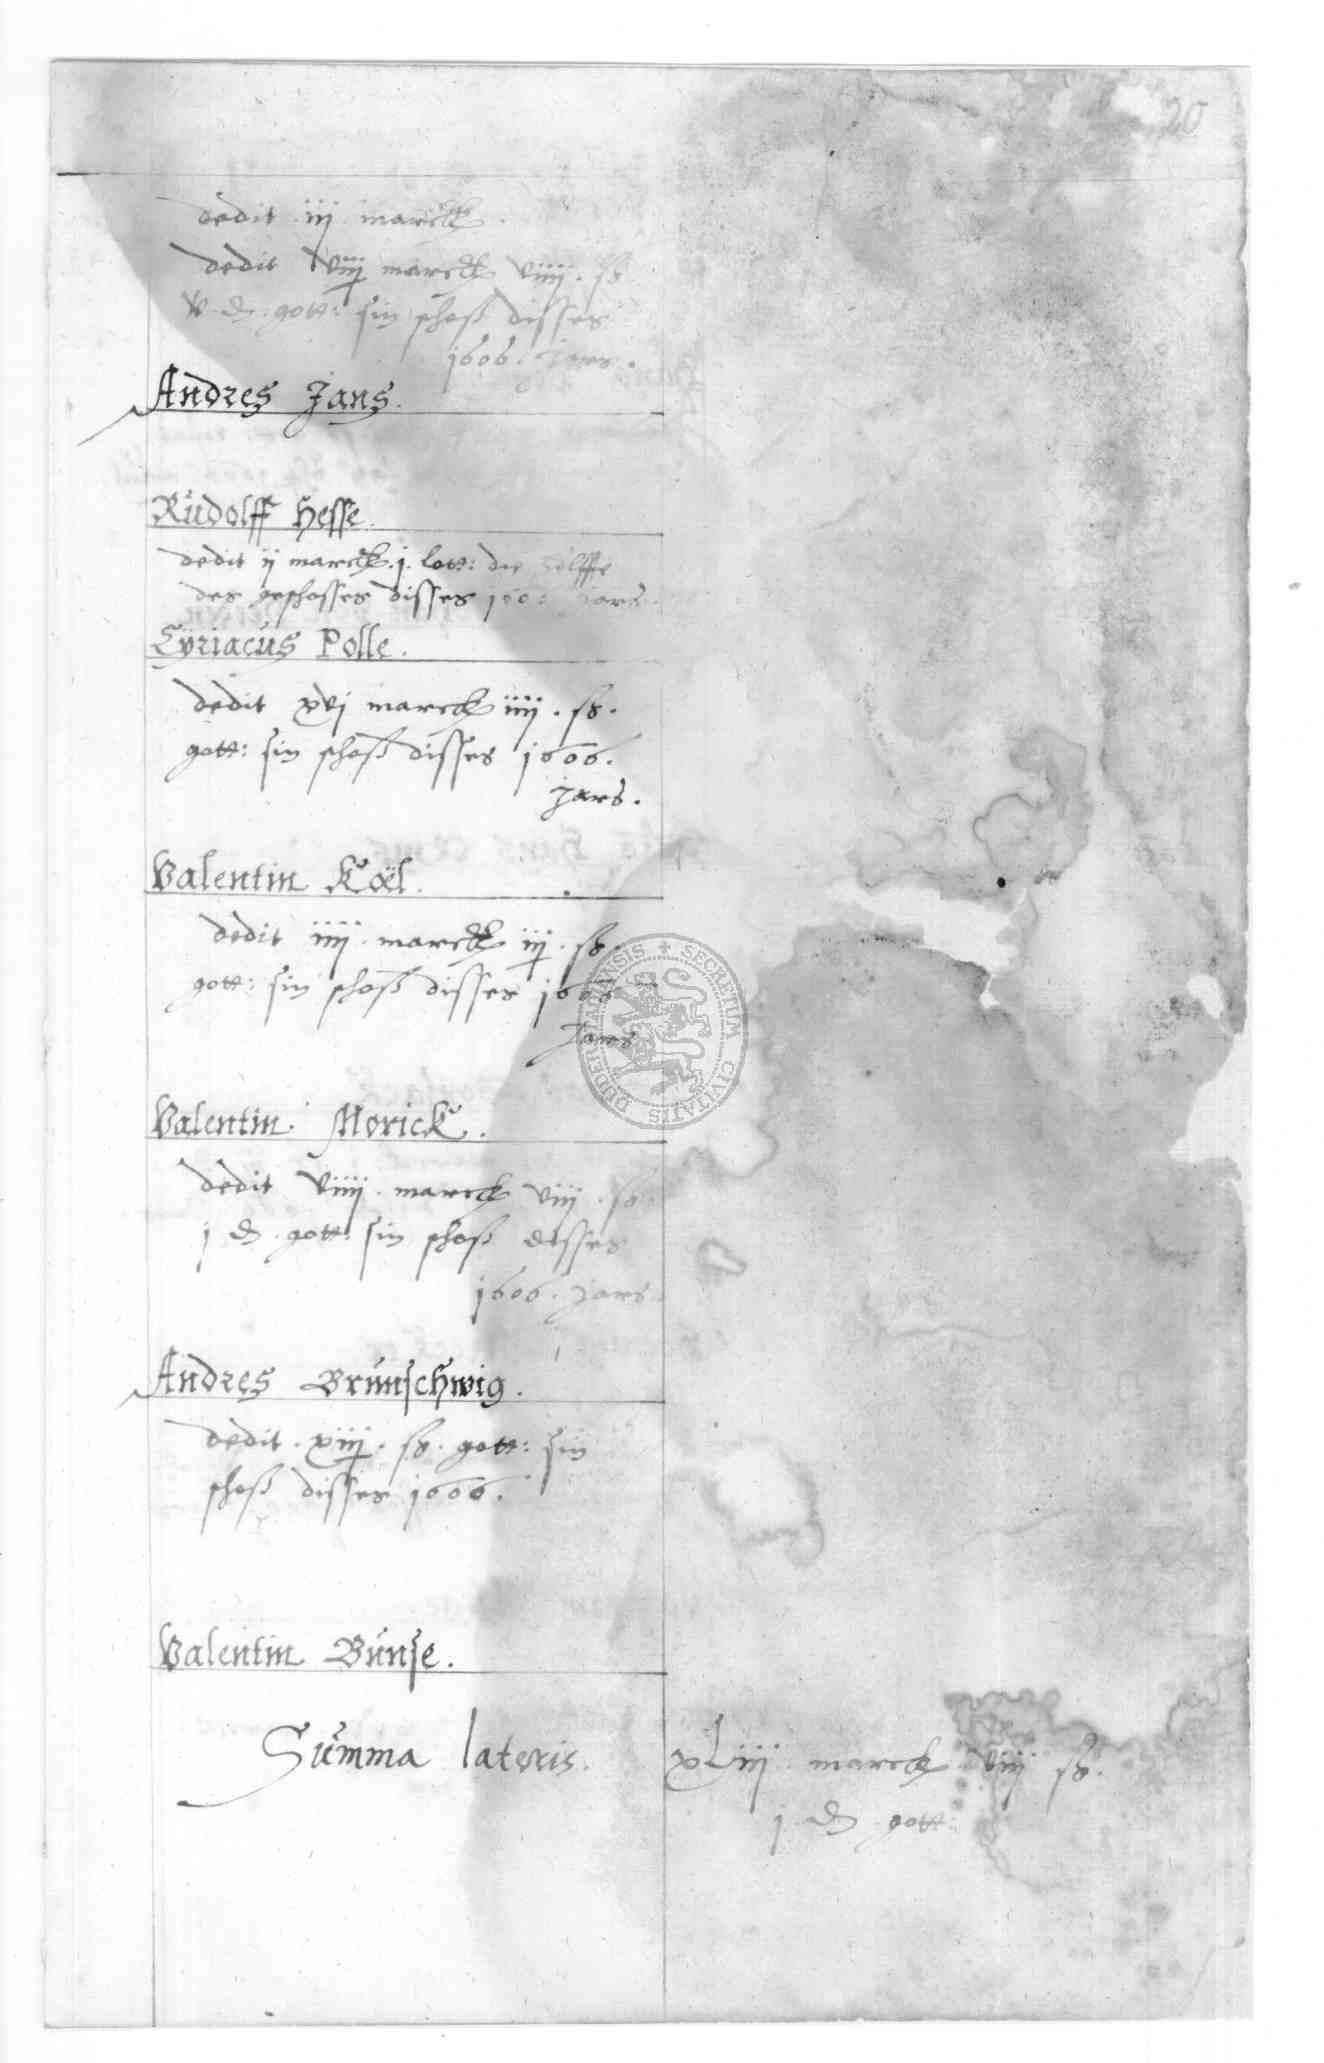 20
dedit iij marck.
dedit viij marck viiij. ß
v. ₰. gott: sin schoß disses
1606. Jars.
Andres Jans.
Rŭdolff Hesse.
dedit ij marck. j. lott: die helffte
des geschosses disses 1606 Jars.
Cÿriacŭs Polle.
dedit xvj marck iiij. ß.
gott: sin schoß disses 1606.
Jars.
Valentin Koël.
dedit iiij. marck iij. ß.
gott: sin schoß disses 1606
Jars
SECRETUM CIVITATIS DUDERSTADENSIS
Valentin Morick.
dedit viiij. marck viij. ß
j ₰. gott: sin schoß disses
1606. Jars.
Andres Brŭnschwig.
dedit. xiij. ß. gott: sin
schoß disses 1606.
Valentin Bŭnse.
Sŭmma lateris. xLiij marck viij ß.
j ₰ gott: